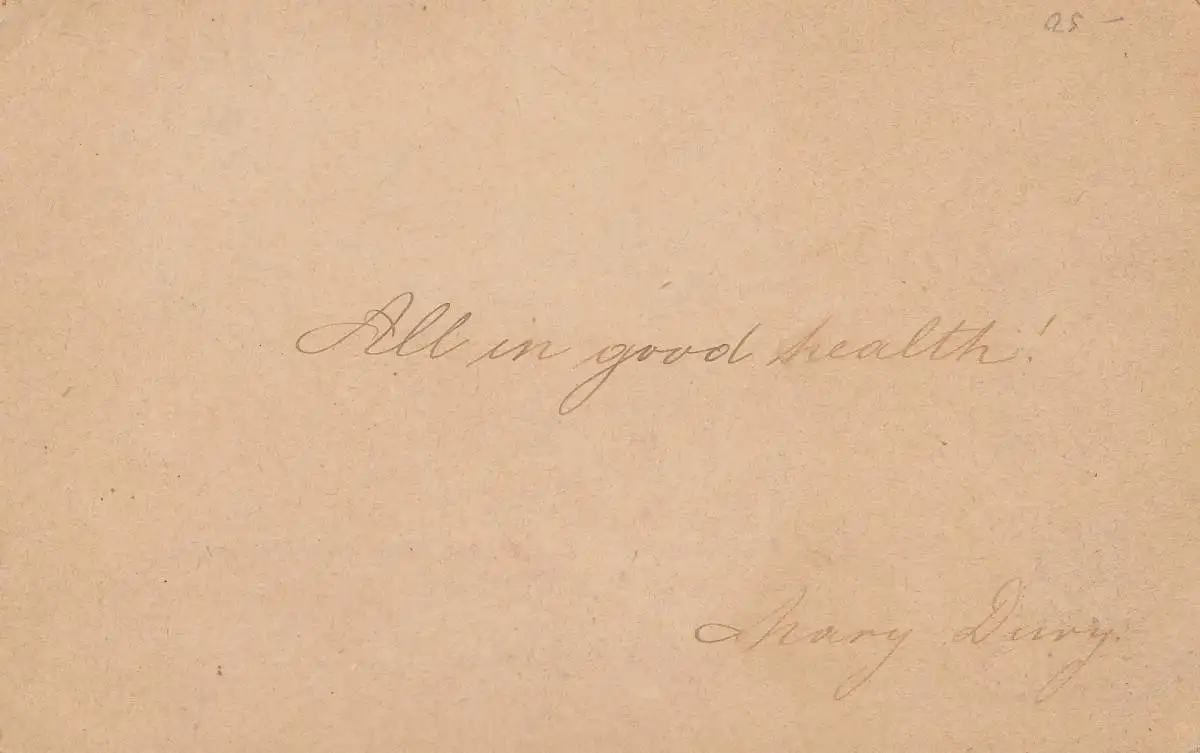 25 –
All in good health!
Mary Dury.